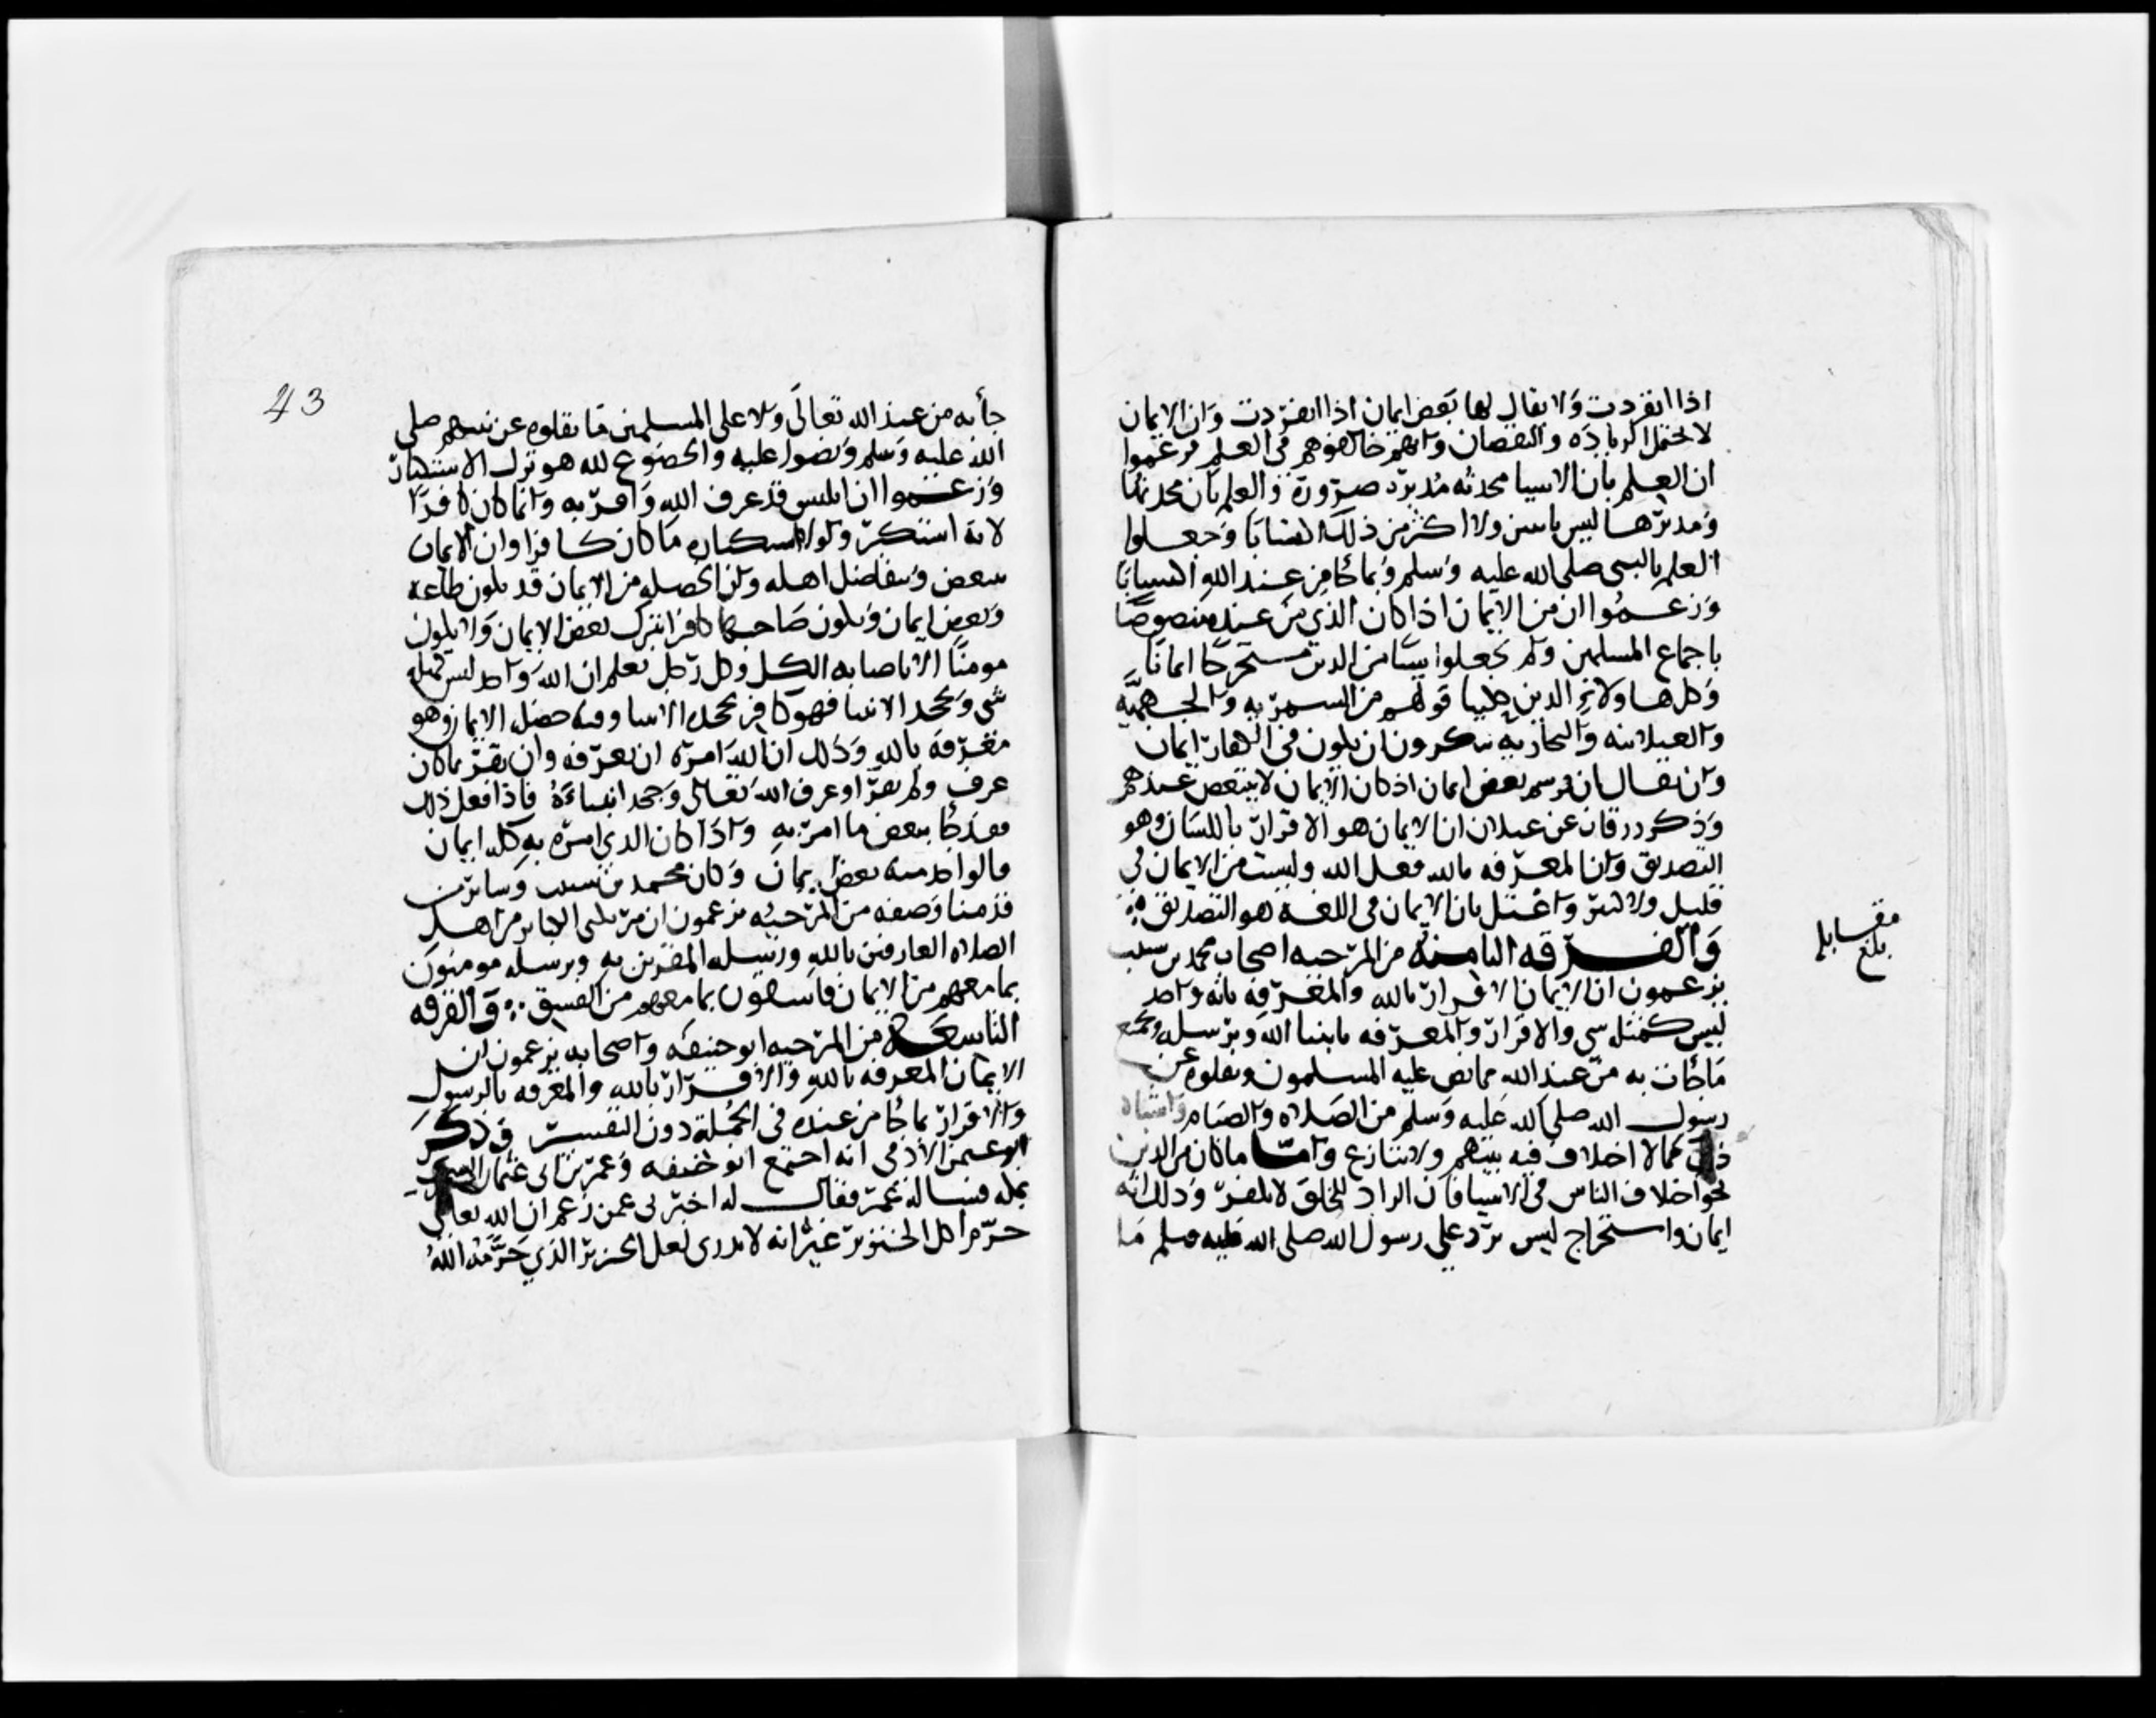 اذا انفردت ولا يقال لها بعض ايمان اذا انفردت وان الايمان
لا يحتمل الزياده والنقصان وانهم خالفوهم في العلم فزعموا
ان العلم بان الاشيا محدثه مدبرة ضرورة والعلم بان محدثها
ومدبرها ليس باثنين ولا اكثر من ذلك اكتسابا وجعلوا
العلم بالنبي صلى الله عليه وسلم وبما جا من عند الله اكتسابا
وزعموا انه من الايمان اذا كان الذي من عنده منصوصا
باجماع المسلمين ولم يجعلوا شيا من الدين مستخرجا ايمانا
وكل هاولاء الذين حكينا قولهم من الشمريه والجهميه
والغيلانيه والنجاريه ينكرون ان يكون في الكفار ايمان
وان يقال ان فيهم بعض ايمان اذ كان الايمان لا يتبعض عندهم
وذكر زرقان عن غيلان ان الايمان هو الاقرار باللسان وهو
التصديق وان المعرفه بالله فعل الله وليست من الايمان في
قليل ولا كثير واعتل بان الايمان في اللغة هو التصديق
والفرقه الثامنه من المرجيه اصحاب محمد بن شبيب
يزعمون ان الايمان الاقرار بالله والمعرفه بانه واحد
ليس كمثله شي والاقرار والمعرفه بانبيا الله وبرسله وبجميع
ما جات به من عند الله مما نص عليه المسلمون ونقلوه عن
رسول الله صلى الله عليه وسلم من الصلاه والصيام واشباه
ذلك مما لا اختلاف فيه بينهم ولا تنازع واما ما كان من الدين
نحو اختلاف الناس في الاشيا فان الراد للحق لا يكفر وذلك انه
ايمان واستخراج ليس يرد على رسول الله صلى الله عليه وسلم ما
مقابله
بلغ
43
جأ به من عند الله تعالى ولا على المسلمين ما نقلوه عن نبيهم صلى
الله عليه وسلم ونصوا عليه والخضوع لله هو ترك الاستكبار
وزعموا ان ابليس قد عرف الله واقر به وانما كان كافرا
لانه استكبر ولولا استكباره ما كان كافرا وان الايمان
يتبعض ويتفاضل اهله وان الخصله من الايمان قد يكون طاعه
وبعض ايمان ويكون صاحبها كافرا بترك بعض الايمان ولا يكون
مومنا الا باصابه الكل وكل رجل يعلم ان الله واحد ليس كمثله
شي ويجحد الانبيا فهو كافر بجحده الانبيا وفيه خصله من الايمان وهو
معرفته بالله وذلك ان الله امره ان يعرفه وان يقر بما كان
عرف ولم يقر او عرف الله تعالى وجحد انبياءه فاذا فعل ذلك
فقد جا ببعض ما امر به واذا كان الذي امره به كله ايمان
فالواحد منه بعض ايمان وكان محمد بن شبيب وساير من
قدمنا وصفه من المرجيه يزعمون ان مرتكبي الكباير من اهل
الصلاه العارفين بالله وبرسله المقرين به وبرسله مومنون
بما معهم من الايمان فاسقون بما معهم من الفسق والفرقه
التاسعه من المرجيه ابو حنيفه واصحابه يزعمون ان
الايمان المعرفه بالله والاقرار بالله والمعرفه بالرسول
والاقرار بما جا من عنده في الجملة دون التفسير وذكر
ابو عثمن الادمي انه اجتمع ابو حنيفه وعمر بن ابي عثمان الشمري
بمكه فساله عمر فقال له اخبرني عمن زعم ان الله تعالى
حرم اكل الخنزير غير انه لا يدري لعل الخنزير الذي حرمه الله